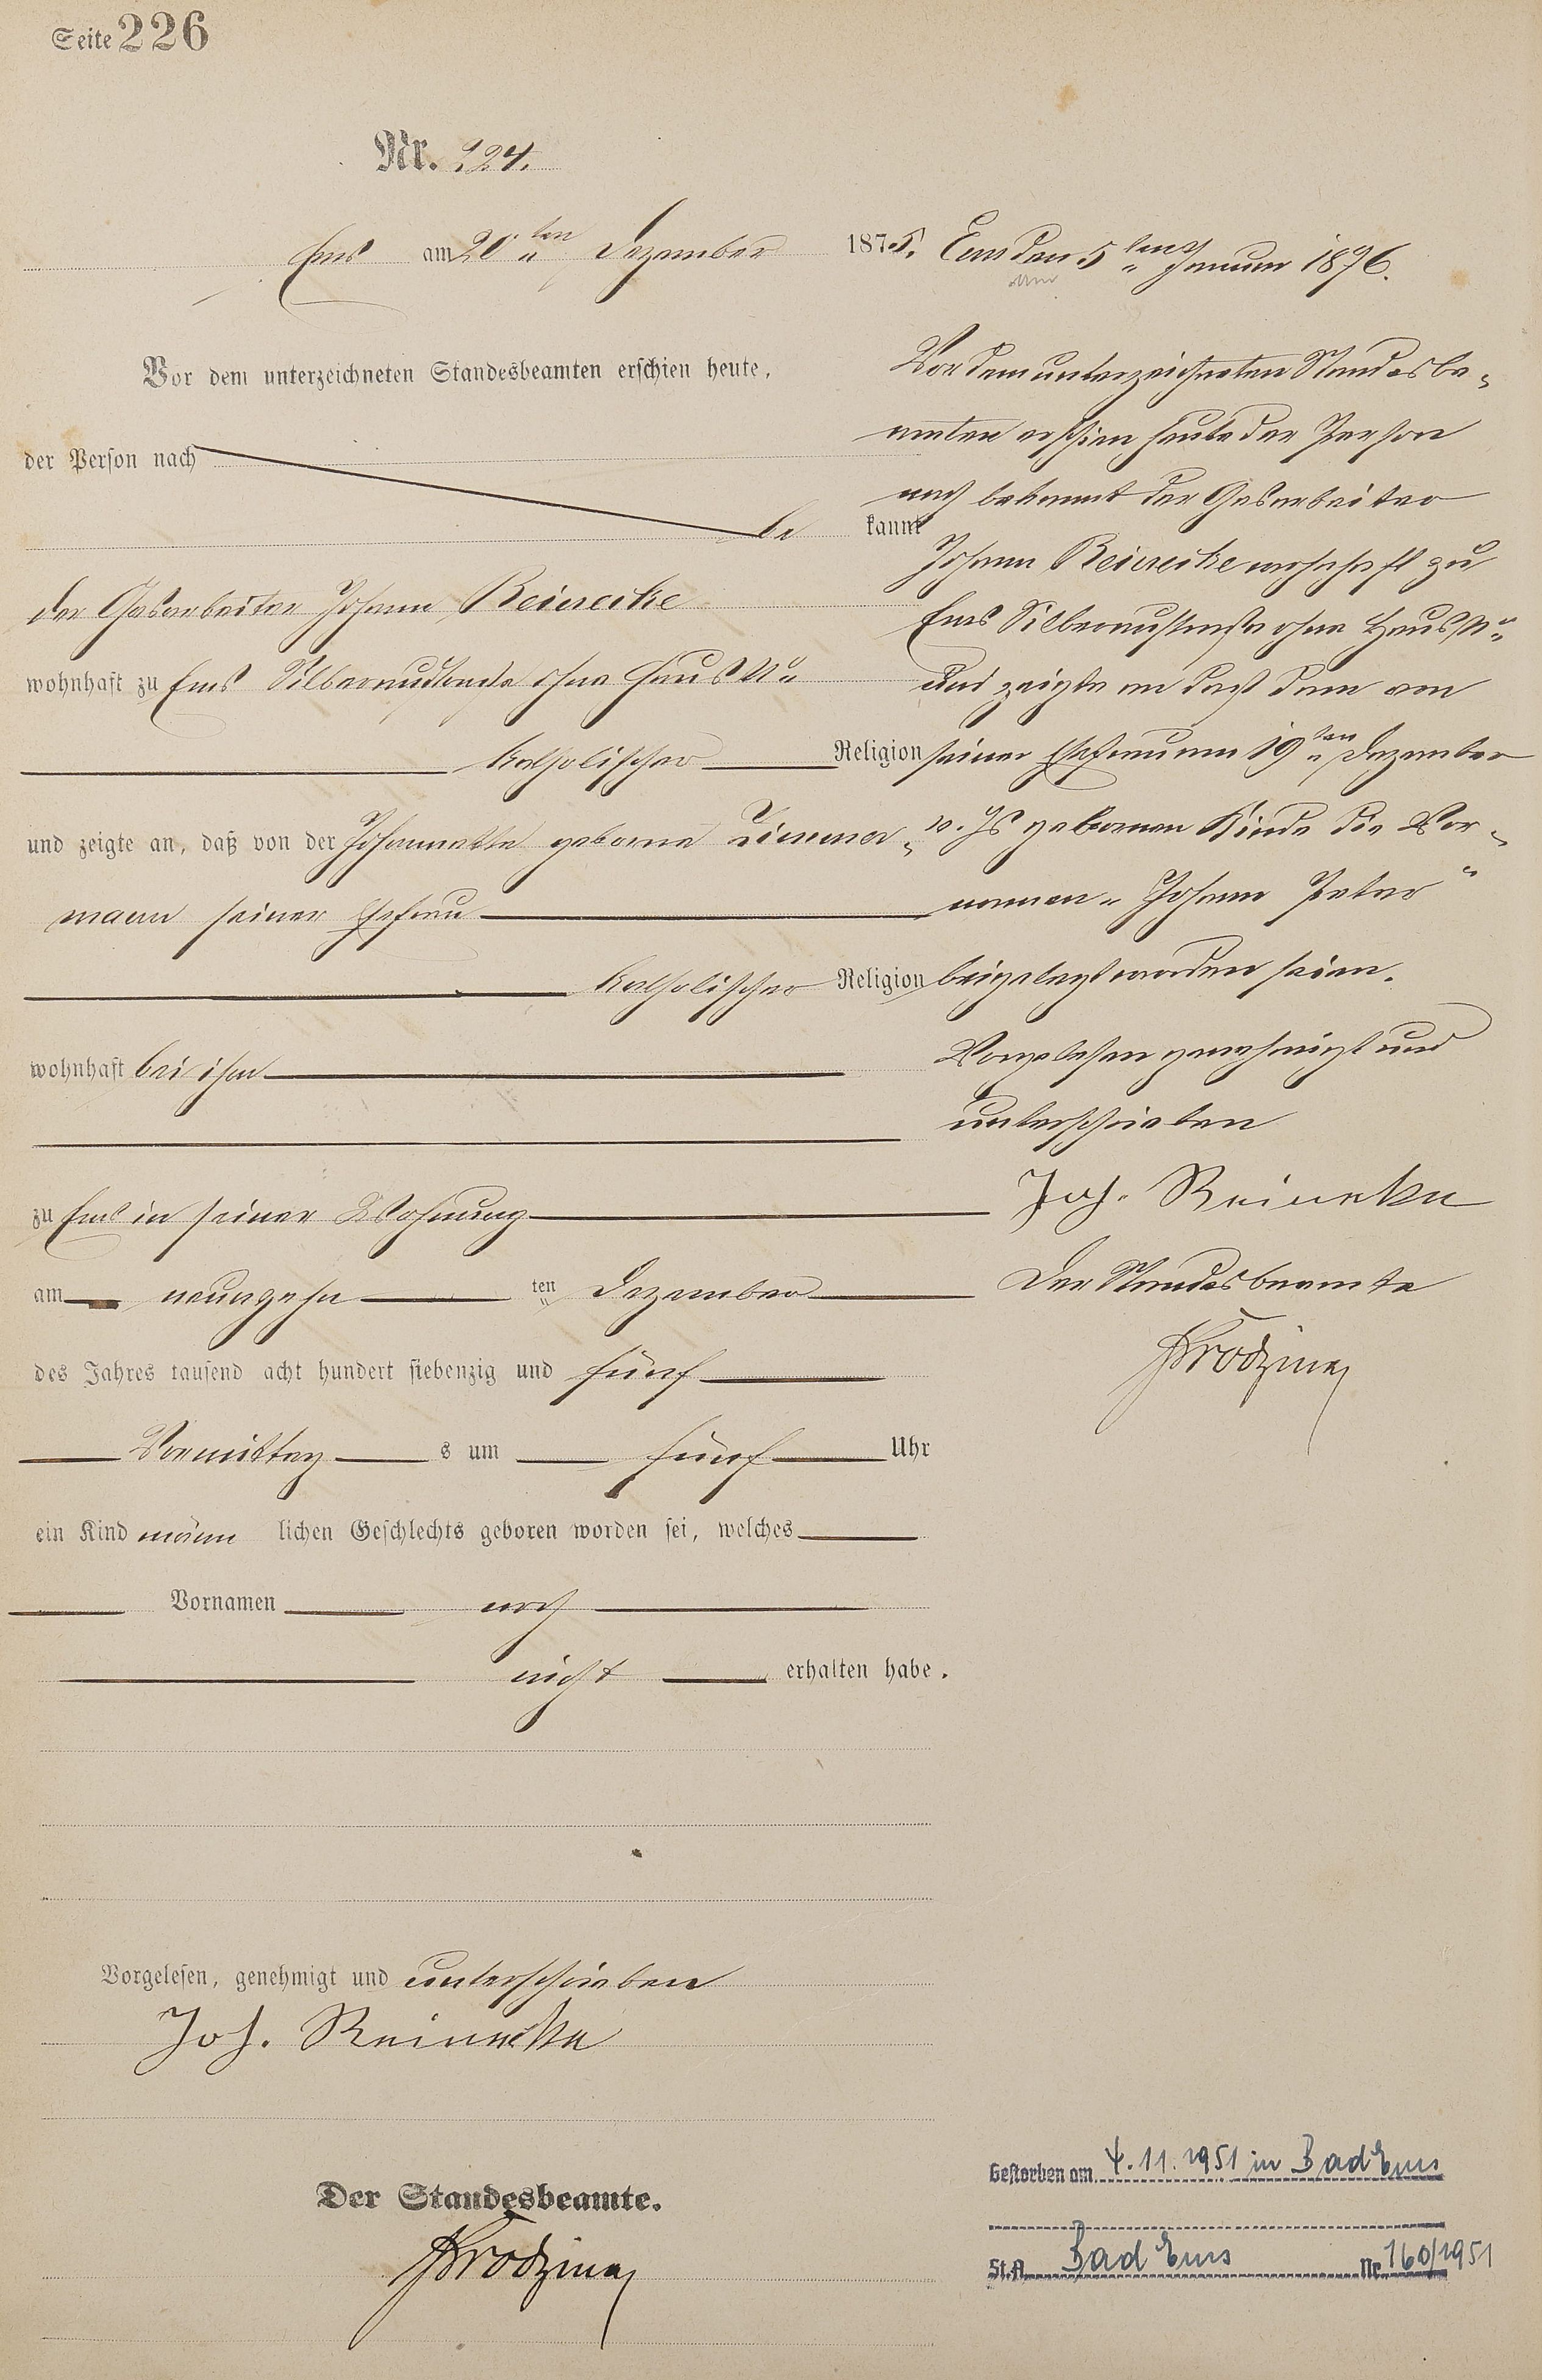 Seite 226
Nr. 224.
Ems am 20ten Dezember 1875.
Vor dem unterzeichneten Standesbeamten erschien heute,
der Person nach
be kannt
der Gasarbeiter Johann Reinecke
wohnhaft zu Ems Silberaustraße ohne Haus No
katholischer Religion
und zeigte an, daß von der Johannette geborne Zimmer-
mann seiner Ehefrau
katholischer Religion
wohnhaft bei ihm
zu Ems in seiner Wohnung
am neunzehn ten Dezember
des Jahres tausend acht hundert siebenzig und fünf
Vormittag s um fünf Uhr
ein Kind männ lichen Geschlechts geboren worden sei, welches
Vornamen noch
nicht erhalten habe.
Vorgelesen, genehmigt und unterschrieben
Joh. Reinecke
Der Standesbeamte.
Ems den 5ten Januar 1876.
Vor dem unterzeichneten Standesbe-
amten erschien heute der Person
nach bekannt der Gasarbeiter
Johann Reinecke wohnhaft zu
Ems Silberaustraße ohne Haus No
und zeigte an daß dem von
seiner Ehefrau am 19ten Dezember
v. Js gebornen Kinde die Vor-
namen "Johann Peter"
beigelegt worden seien.
Vorgelesen genehmigt und
unterschrieben
Joh. Reinecke
Der Standesbeamte
Gestorben am 4.11.1951 in Bad Ems
St.A. Bad Ems Nr. 160/1951